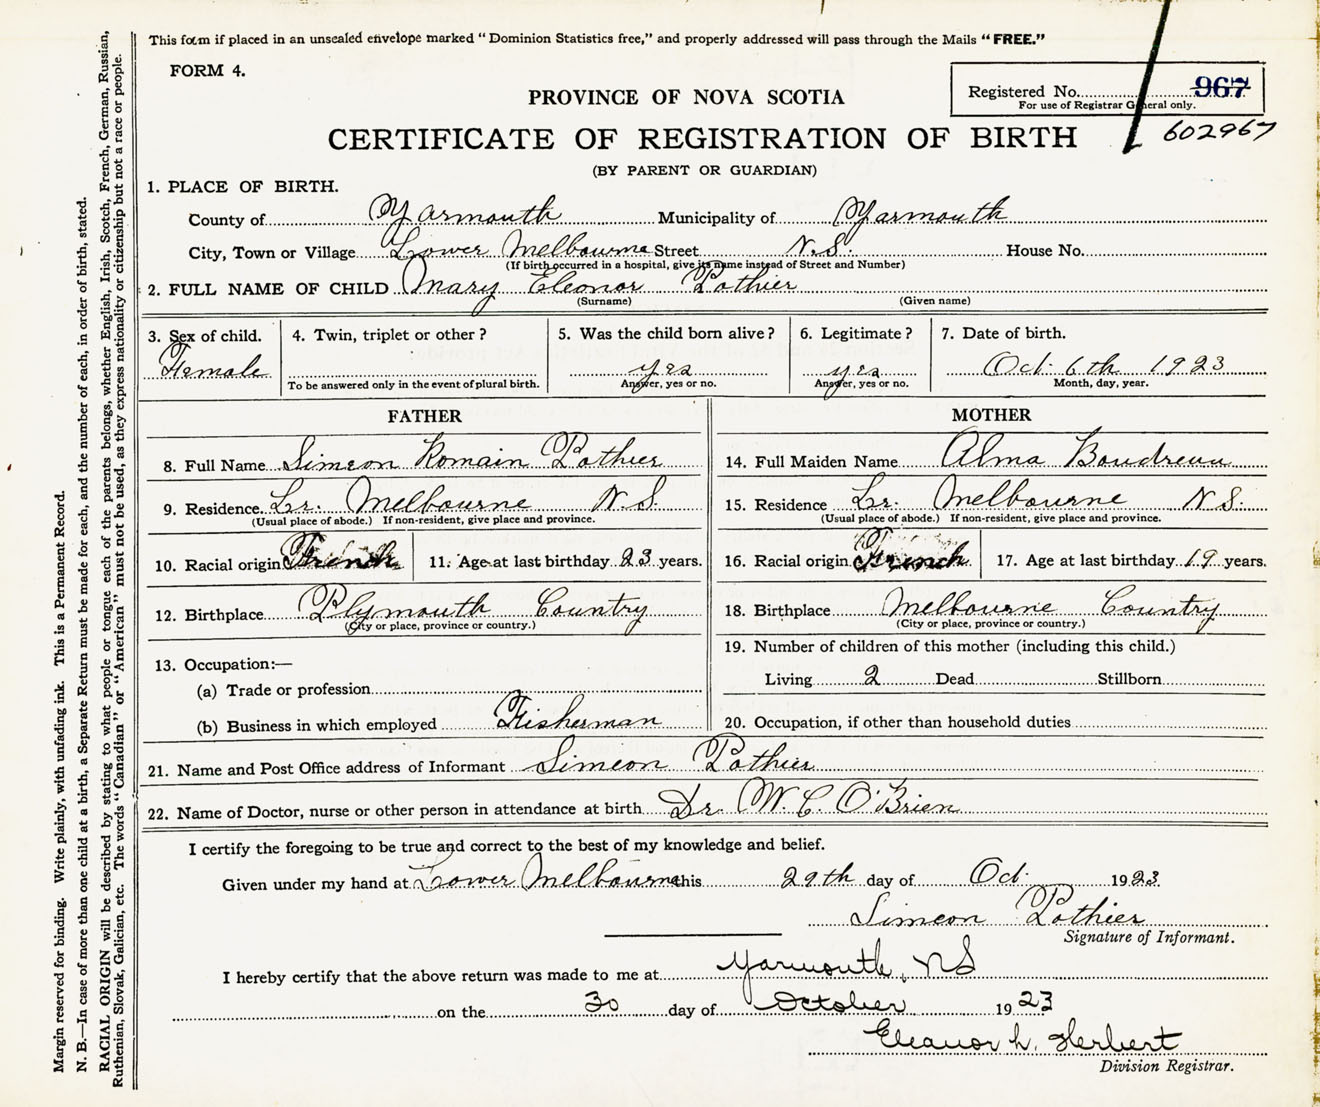 This form if placed in an unsealed envelope marked "Dominion Statistics free," and properly addressed will pass through the Mails "FREE."
FORM 4.
Registered No. 967
For use of Registrar General only.
602967
PROVINCE OF NOVA SCOTIA
CERTIFICATE OF REGISTRATION OF BIRTH
(BY PARENT OR GUARDIAN)
1. PLACE OF BIRTH.
County of Yarmouth Municipality of Yarmouth
City, Town or Village Lower Melbourne Street N.S. House No.
(If birth occurred in a hospital, give its name instead of Street and Number)
2. FULL NAME OF CHILD Mary Eleonor Pothier
(Surname) (Given name)
3. Sex of child. 4. Twin, triplet or other? 5. Was the child born alive? 6. Legitimate? 7. Date of birth.
Female yes yes Oct. 6th 1923
To be answered only in the event of plural birth. Answer, yes or no. Answer, yes or no. Month, day, year.
FATHER MOTHER
8. Full Name Simeon Romain Pothier 14. Full Maiden Name Alma Boudreau
9. Residence Lr. Melbourne N.S. 15. Residence Lr. Melbourne N.S.
(Usual place of abode.) If non-resident, give place and province. (Usual place of abode.) If non-resident, give place and province.
10. Racial origin French 11. Age at last birthday 23 years. 16. Racial origin French 17. Age at last birthday 19 years.
12. Birthplace Plymouth Country 18. Birthplace Melbourne Country
(City or place, province or country.) (City or place, province or country.)
13. Occupation:— 19. Number of children of this mother (including this child.)
(a) Trade or profession Living 2 Dead Stillborn
(b) Business in which employed Fisherman 20. Occupation, if other than household duties
21. Name and Post Office address of Informant Simeon Pothier
22. Name of Doctor, nurse or other person in attendance at birth Dr. W. C. O'Brien
I certify the foregoing to be true and correct to the best of my knowledge and belief.
Given under my hand at Lower Melbourne this 29th day of Oct. 1923
Simeon Pothier
Signature of Informant.
I hereby certify that the above return was made to me at Yarmouth, NS
on the 30 day of October 1923
Eleanor L. Herbert
Division Registrar.
Margin reserved for binding. Write plainly, with unfading ink. This is a Permanent Record.
N. B.—In case of more than one child at a birth, a Separate Return must be made for each, and the number of each, in order of birth, stated.
RACIAL ORIGIN will be described by stating to what people or tongue each of the parents belongs, whether English, Irish, Scotch, French, German, Russian,
Ruthenian, Slovak, Galician, etc. The words "Canadian" or "American" must not be used, as they express nationality or citizenship but not a race or people.